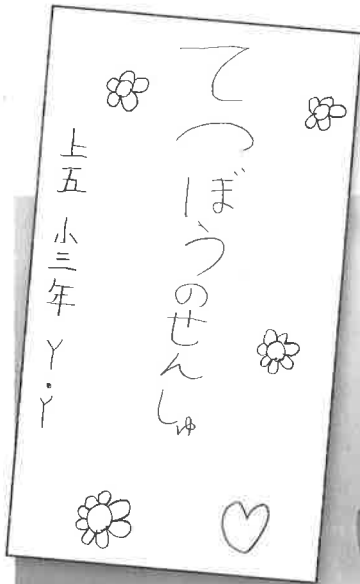 てつぼうのせんしゅ
上五小三年 Y・Y